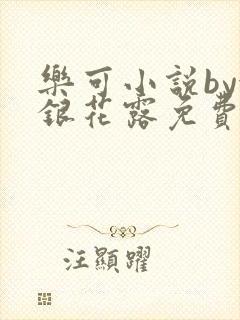 樂可小説by
銀花露免費
汪顯躍